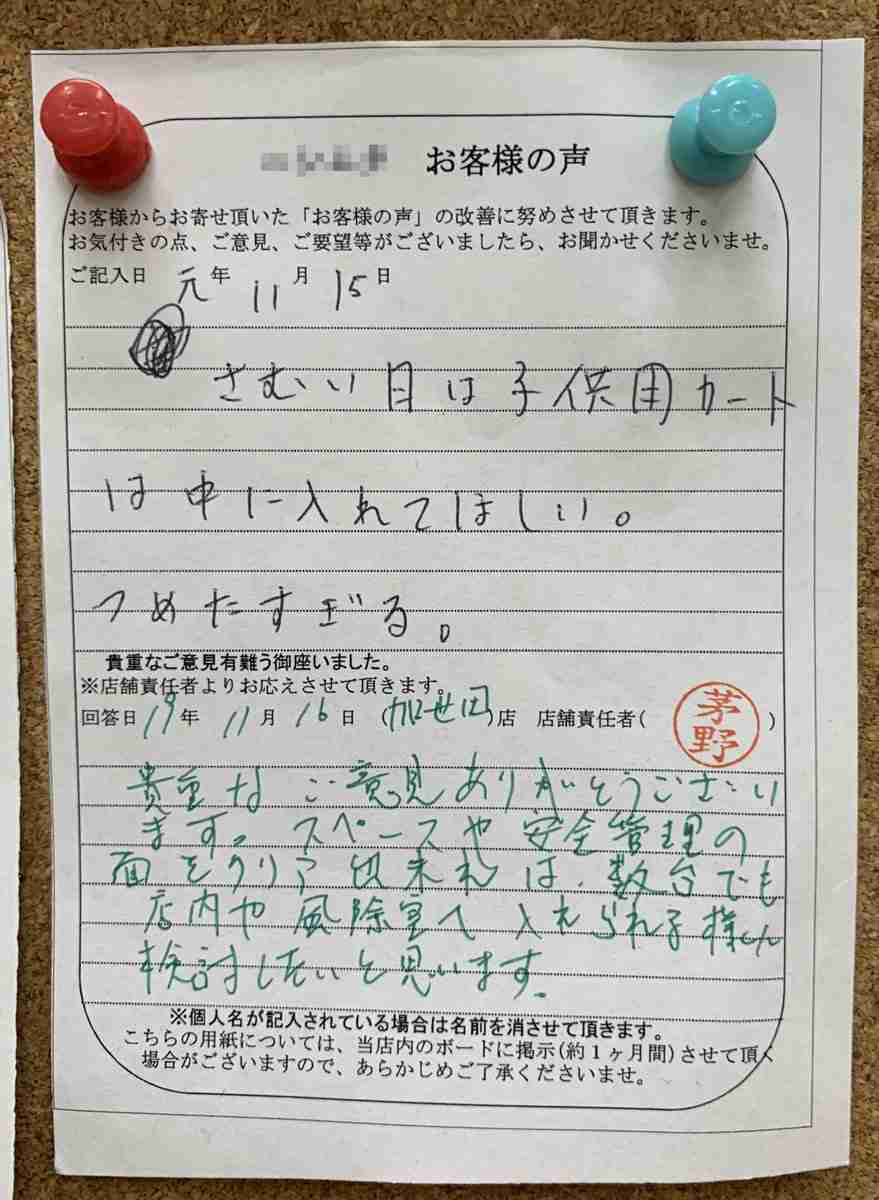 お客様の声
お客様からお寄せ頂いた「お客様の声」の改善に努めさせて頂きます。
お気付きの点、ご意見、ご要望等がございましたら、お聞かせくださいませ。
ご記入日 元年 11月 15日
さむい日は子供用カート
は中に入れてほしい。
つめたすぎる。
貴重なご意見有難う御座いました。
※店舗責任者よりお応えさせて頂きます。
回答日 19年 11月 16日 (加世田)店 店舗責任者( 茅野 )
貴重なご意見ありがとうござい
ます。スペースや安全管理の
面をクリア出来れば、数台でも
店内や風除室へ入れられる様に
検討したいと思います。
※個人名が記入されている場合は名前を消させて頂きます。
こちらの用紙については、当店内のボードに掲示(約1ヶ月間)させて頂く
場合がございますので、あらかじめご了承くださいませ。